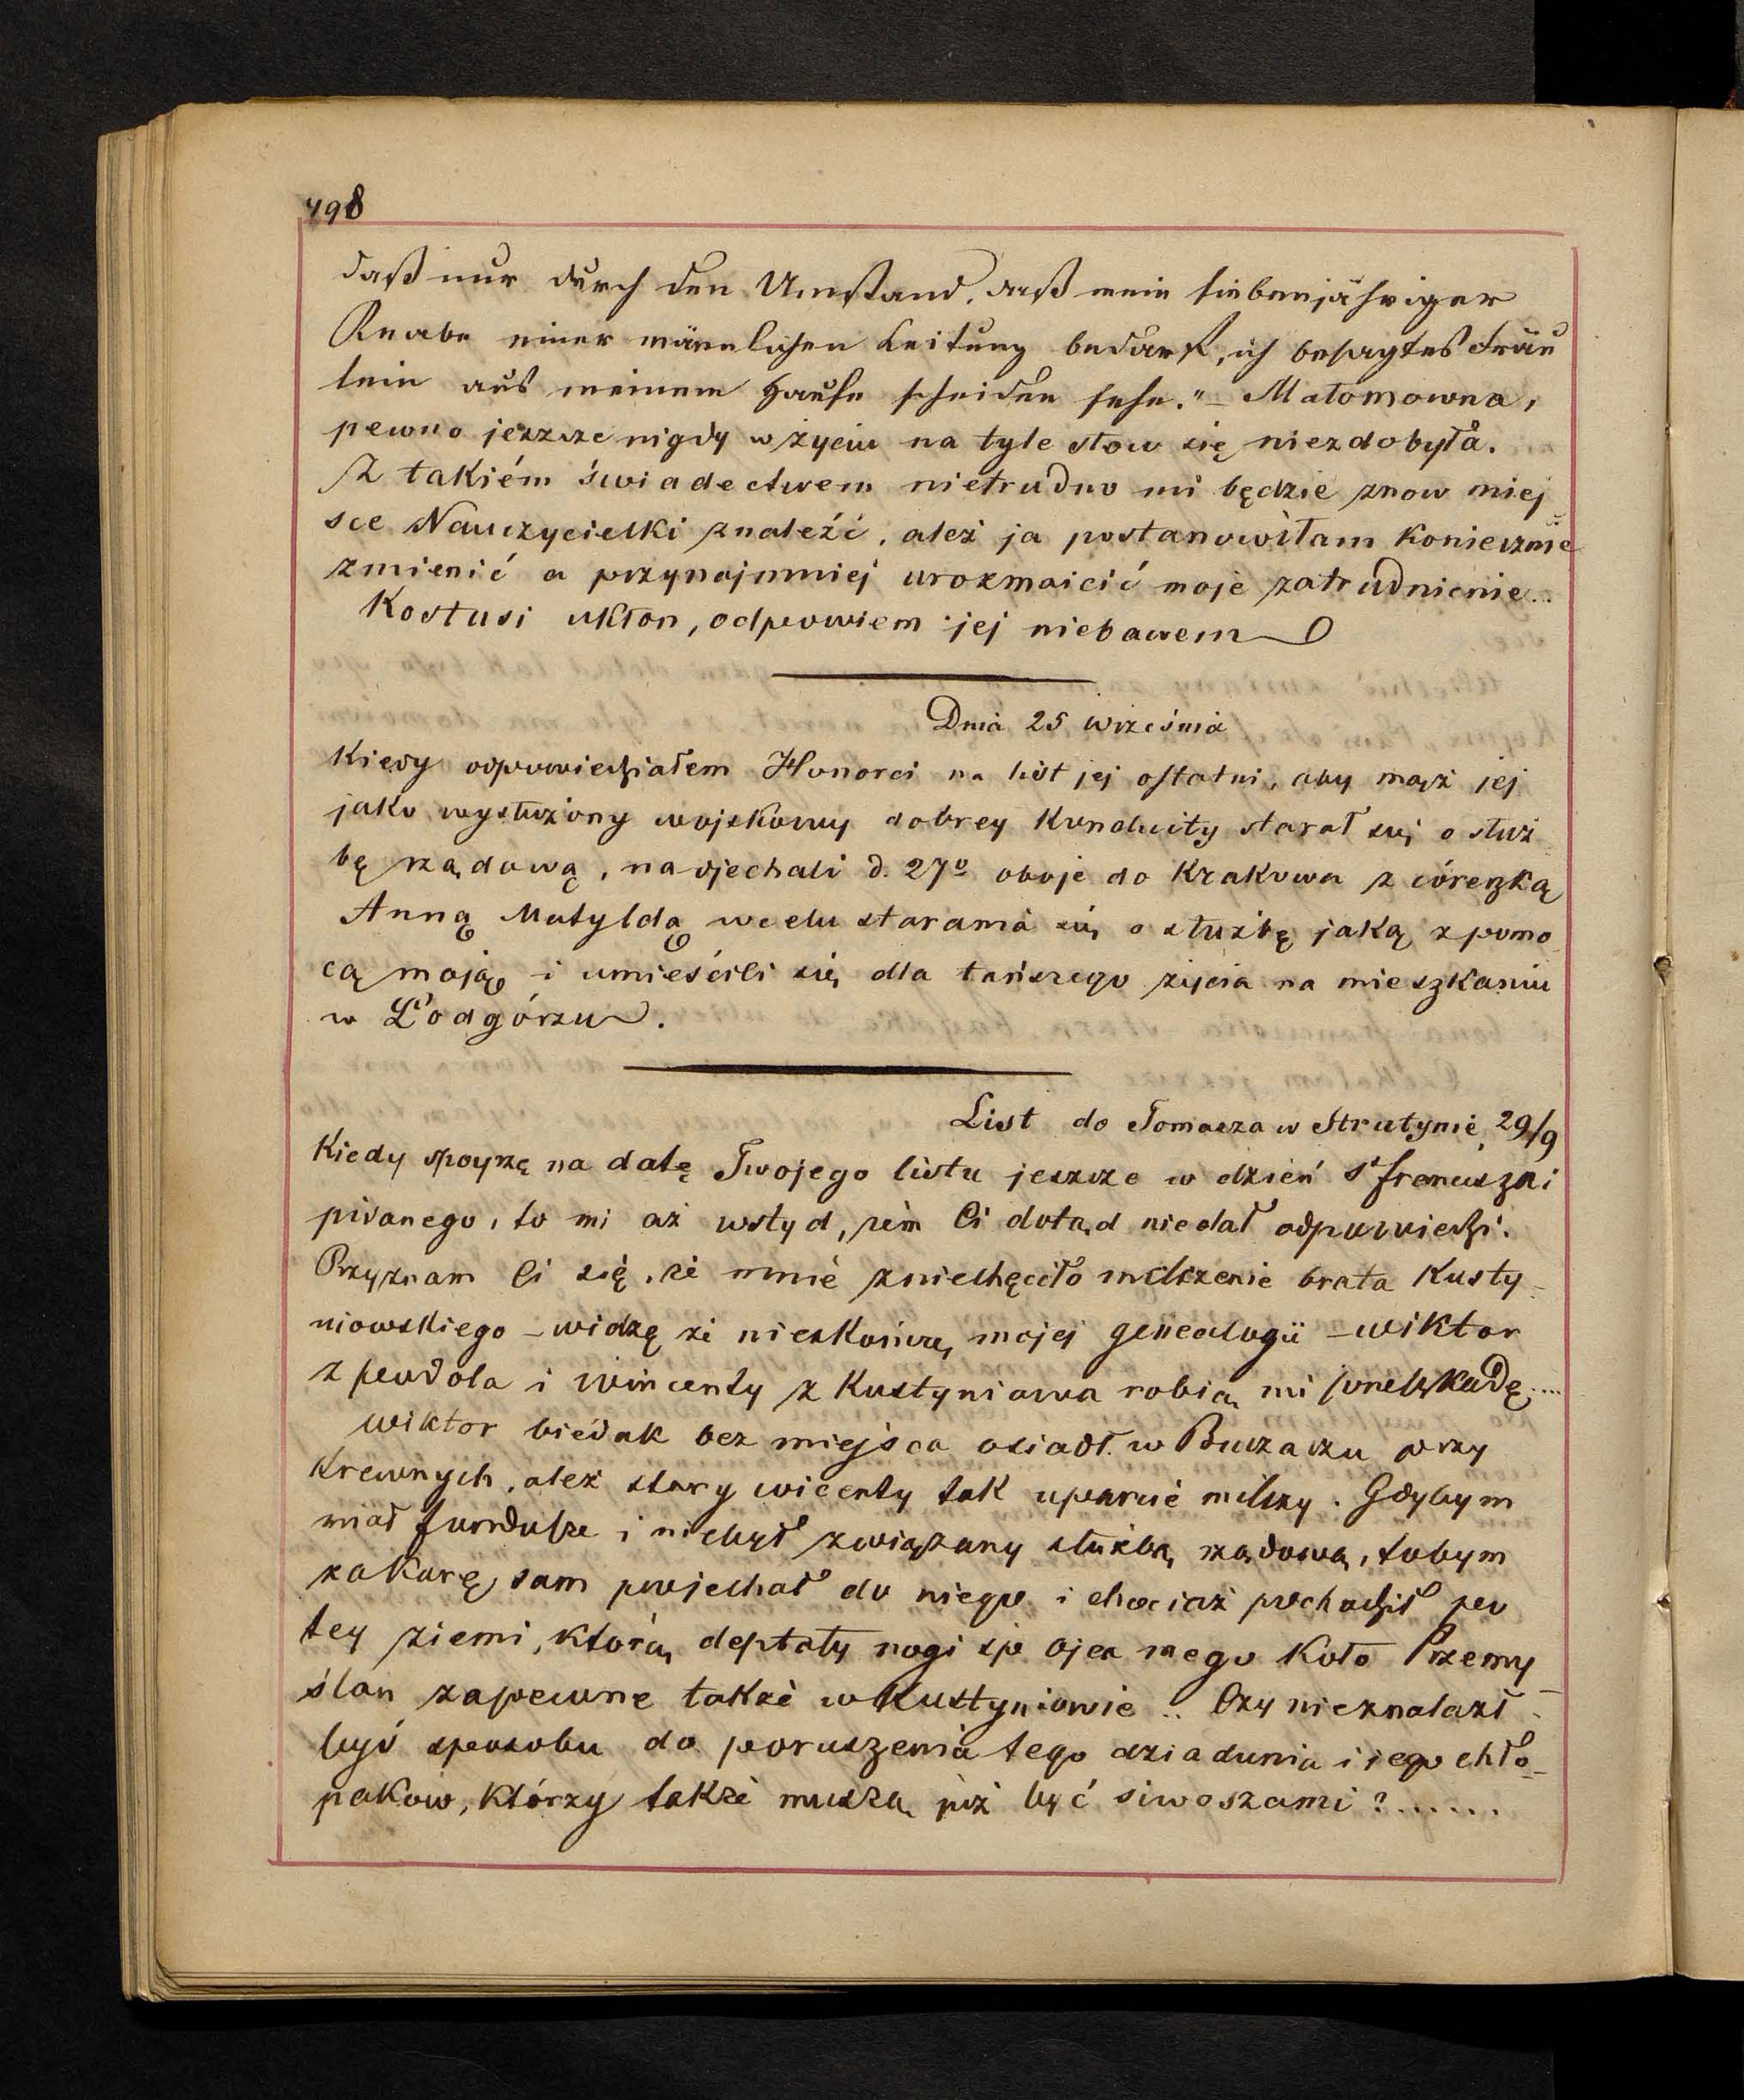 498
daß nur durch den Umstand, daß mein siebenjähriger
Knabe einer männlichen Leitung bedarf, ich besagtes Fräu
lein aus meinem Hause scheiden sehe." – Małomowna,
pewno jeszcze nigdy w życiu na tyle słow się niezdobyła.
Z takiém świadectwem nietrudno mi będzie znow miej
sce Nauczycielki znaleźć, ależ ja postanowiłam koniecznie
zmienić a przynajmniej urozmaicić moje zatrudnienie..
Kostusi ukłon, odpowiem jej niebawem
Dnia 25 września
Kiedy odpowiedziałem Honorci na list jej ostatni, aby mąż jej
jako wysłużony wojskowy dobrey konduity starał się o służ
bę rządową, nadjechali d. 27º oboje do Krakowa z córeczką
Anną Matyldą w celu starania się o służbę jaką z pomo
cą moją i umieścili się dla tańszego życia na mieszkaniu
w Podgórzu.
List do Tomasza w Strutynie 29/9
Kiedy spoyrzę na datę Twojego listu jeszcze w dzień Sº Franciszki
pisanego, to mi aż wstyd, żem Ci dotąd niedał odpowiedzi.
Przyznam Ci się, że mnie zniechęciło milczenie brata Kusty-
niowskiego – widzę że nieskończę mojej genealogii – Wiktor
z Podola i Wincenty z Kustyniowa robią mi prze[s]zkodę....
Wiktor biédak bez miejsca osiadł w Buczaczu przy
Krewnych, ależ stary Wicenty tak uparcie milczy. Gdybym
miał fundusze i niebył związany służbą rządową, tobym
zakurę sam pojechał do niego i chociaż pochodził po
tey ziemi, którą deptały nogi śp Ojca mego koło Przemy-
ślan zapewne także w Kustyniowie.. Czy nieznalazł-
byś sposobu do poruszenia tego dziadunia i iego chło-
pakow, którzy także muszą już być siwoszami?......